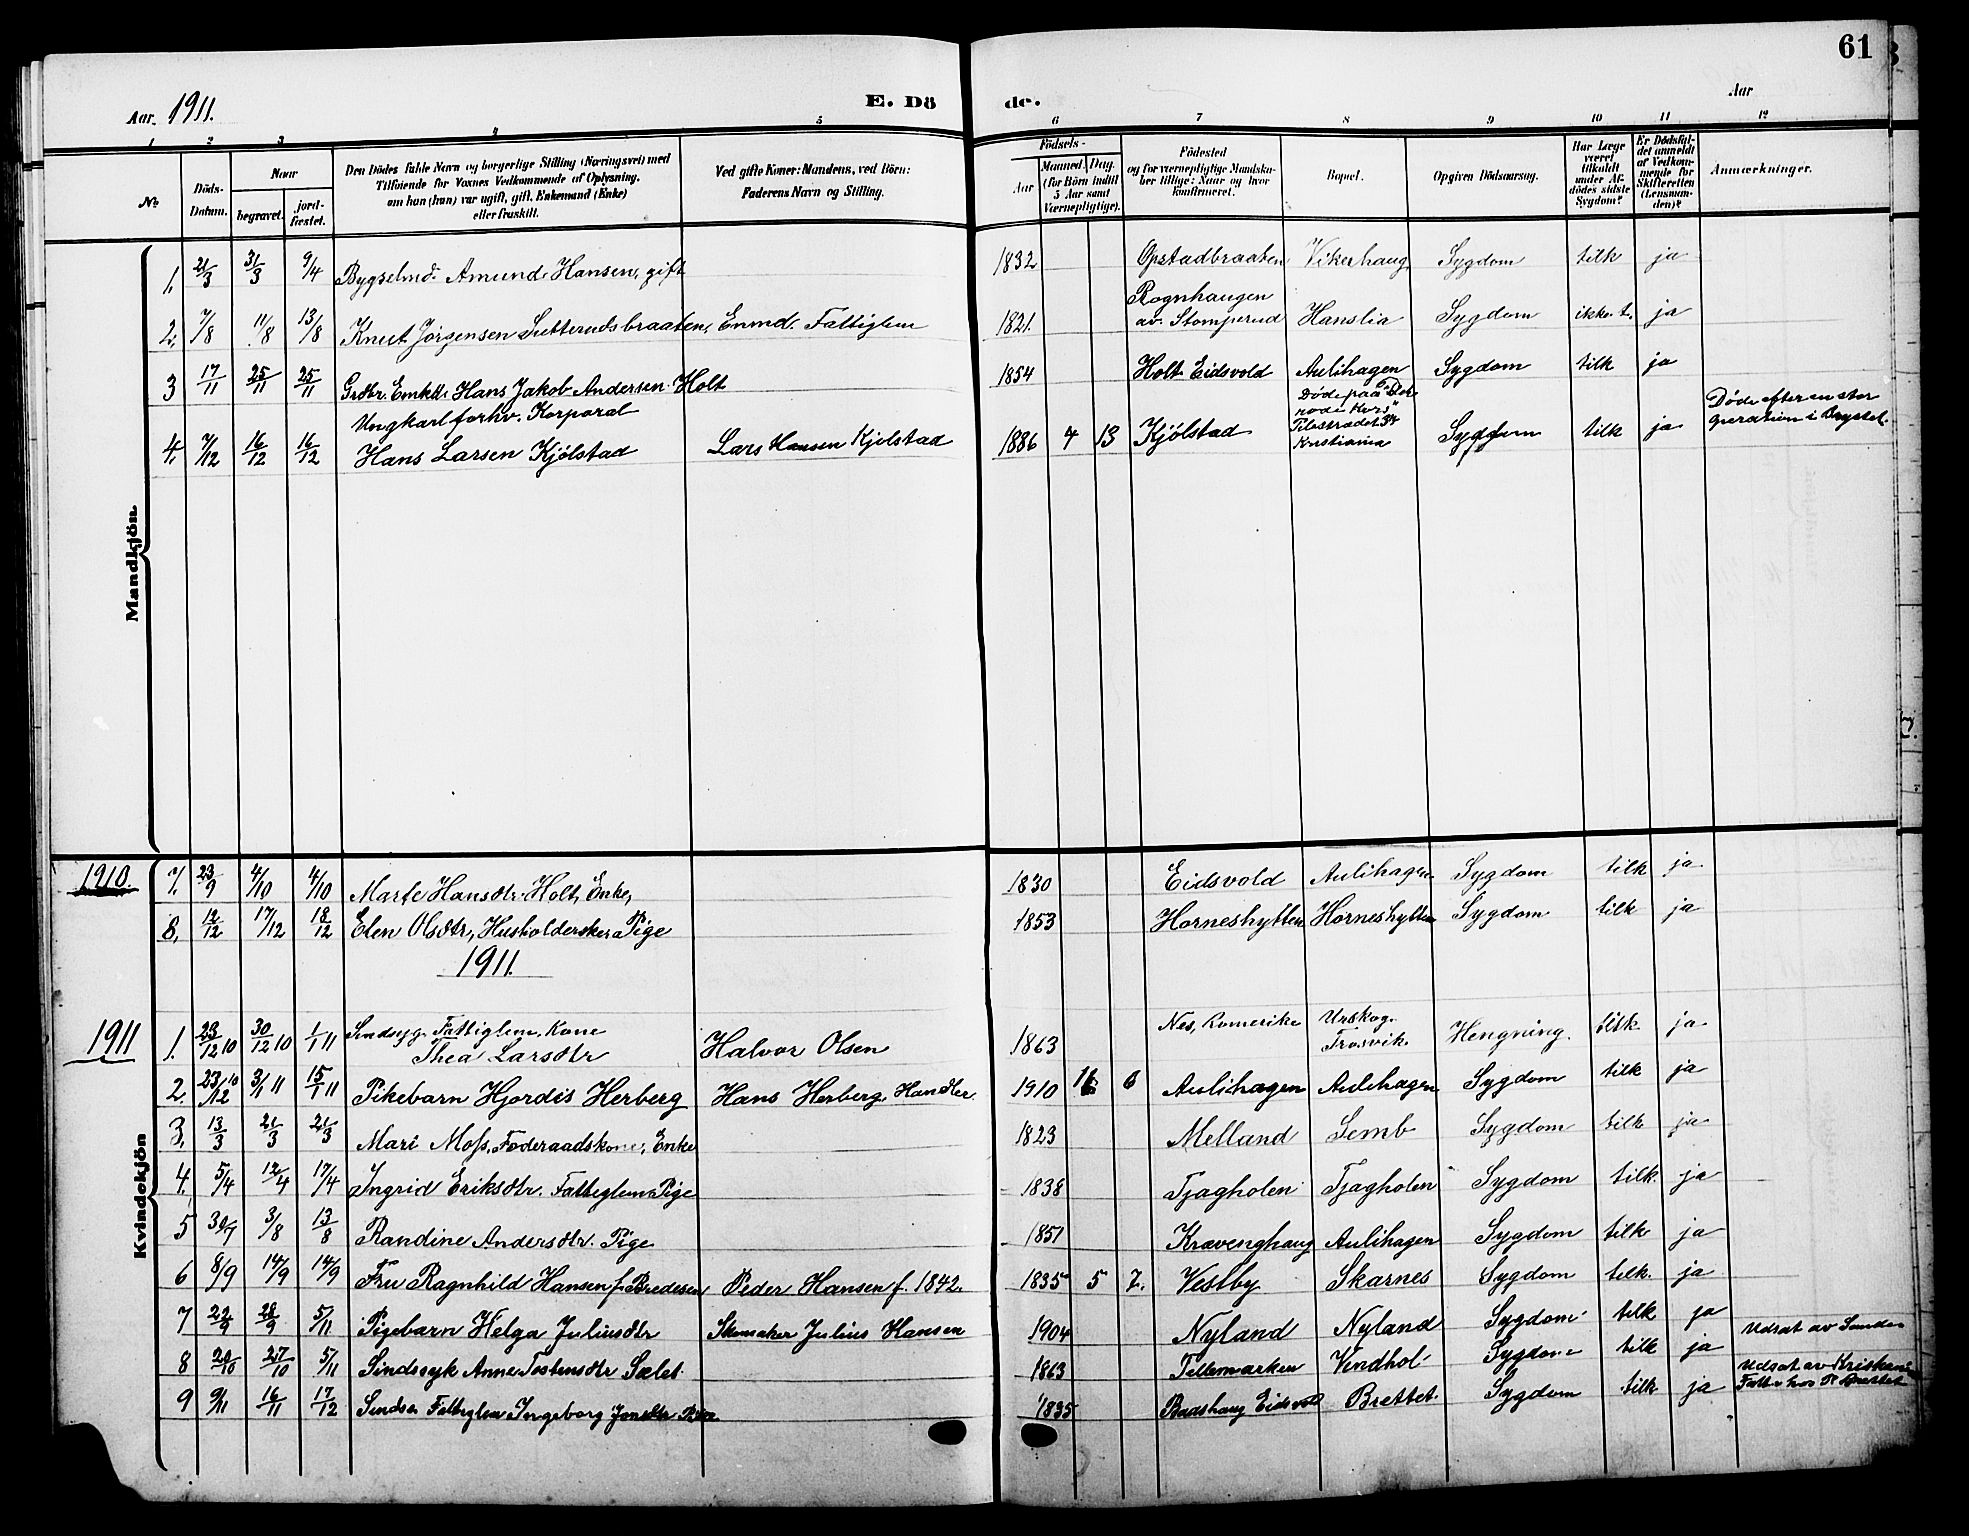 61
Aar. 1911.
E. Dö
de.
Aar
1 2 3 4 5 6 7 8 9 10 11 12
No
Döds-Datum.
Naar
begravet.
jord-fæstet.
Den Dödes fulde Navn og borgerlige Stilling (Næringsvei) med
Tilföiende for Voxnes Vedkommende af Oplysning,
om han (hun) var ugift, gift, Enkemand (Enke)
eller fraskilt.
Ved gifte Koner: Mandens, ved Börn:
Faderens Navn og Stilling.
Födsels-
Aar
Maaned. Dag.
(for Börn indtil
5 Aar samt
Værnepligtige).
Födested
og for værnepligtige Mandska-
ber tillige: Naar og hvor
konfirmeret.
Bopæl.
Opgiven Dödsaarsag.
Har Læge
været
tilkaldt
under Af-
dödes sidste
Sygdom?
Er Dödsfal-
det anmeldt
af Vedkom-
mende for
Skifteretten
(Lensman-
den)?
Anmærkninger.
Mandkjön.
1. 21/3 31/3 9/4 Bygselmd. Amund Hansen, gift 1832 Opstadbraaten Vikerhaug Sygdom tilk ja
2. 7/8 11/8 13/8 Knut Jörgensen Sætterudsbraaten, Enmd. Fattiglem 1821. Rognhaugen
av. Stomperud Hanslia Sygdom ikke t. ja
3 17/11 25/11 25/11 Grdbr. Emkd. Hans Jakob Andersen Holt 1854 Holt Eidsvold Aulihagen Sygdom tilk ja
4. 7/12 16/12 16/12 Ungkarl forhv. Korporal
Hans Larsen Kjölstad Lars Hansen Kjölstad 1886 4 13 Kjölstad Döde paa
röde Kors"
Pilestrædet
Kristiania Sygdom tilk ja Döde efter en stor
operation i Brystet.
Kvindekjön
1910. 7. 23/9 4/10 4/10 Marte Hansdtr. Holt, Enke, 1830 Eidsvold Aulihagen Sygdom tilk ja
8. 12/12 17/12 18/12 Elen Olsdtr, Husholderske, Pige 1853 Horneshytten Horneshytten Sygdom tilk ja
1911.
1911 1. 23/12 10 30/12 10 1/1 11 Sindsyg. Fattiglem. Kone
Thea Larsdtr Halvor Olsen 1863 Nes, Romerike Urskog.
Trosvik. Hengning. tilk ja
2. 23/12 10 3/1 11 15/1 11 Pikebarn Hjordis Herberg Hans Herberg, Handler 1910 11 6 Aulihagen Aulihagen Sygdom tilk ja
3. 13/3 21/3 21/3 Mari Moss, Föderaadskone, Enke 1823 Melland Semb Sygdom tilk ja
4. 5/4 12/4 17/4 Ingrid Eriksdtr. Fattiglem Pige 1838 Tjagholen Tjagholen Sygdom tilk. ja
5 30/7 3/8 13/8 Randine Andersdtr. Pige 1851 Kravenghaug Aulihagen Sygdom tilk ja
6 8/9 14/9 14/9 Fru Ragnhild Hansen f. Bredesen Peder Hansen f. 1842. 1835 5 7. Vestby Skarnes Sygdom tilk. ja
7 22/9 28/9 5/11 Pigebarn Helga Juliusdtr Skomaker Julius Hansen 1904 Nyland Nyland Sygdom tilk ja
8 20/10 27/10 5/11 Sindssyk Anne Tostensdtr Sælet 1863 Tillemarken Vindhol Sygdom tilk ja Udsat av Sunde
9 9/11 16/11 17/12 Sinds. Fattiglem Ingeborg Jonsdtr 1835 Baashaug Eidsvold Brættet Sygdom tilk ja Udsat av